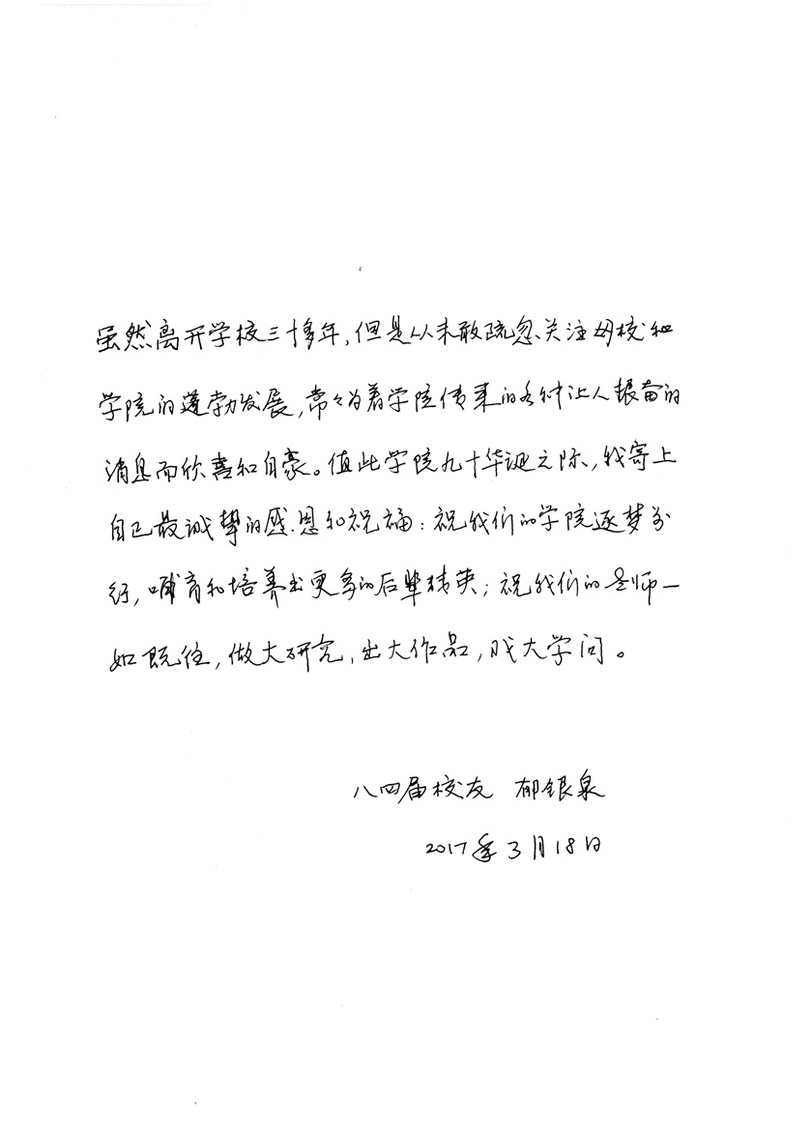 虽然离开学校三十多年,但是从未敢疏忽、关注母校和
学院的蓬勃发展,常々为着学院传来的各种让人振奋的
消息而欣喜和自豪。值此学院九十华诞之际,我寄上
自己最诚挚的感恩和祝福:祝我们的学院逐梦前
行,哺育和培养出更多的后辈精英;祝我们的老师一
如既往,做大研究,出大作品,成大学问。
八四届校友 郁银泉
2017年3月18日